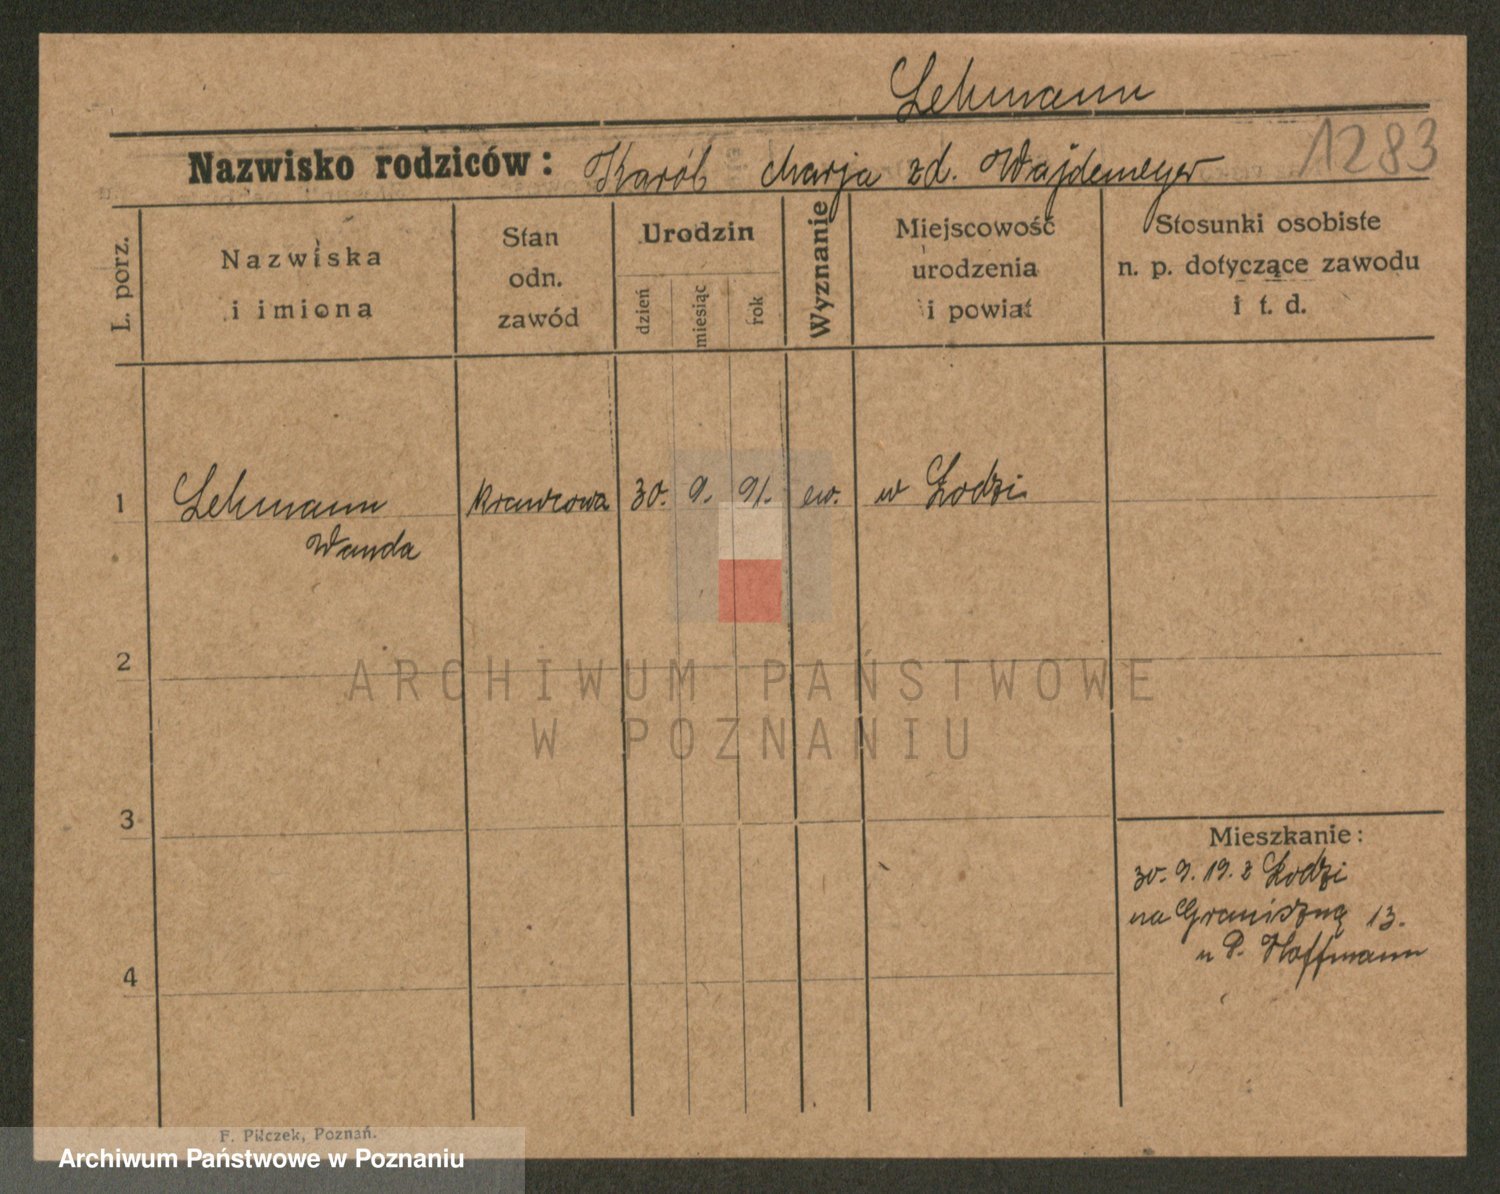 Lehmann
1283
Nazwisko rodziców: Karól Marja zd. Wajdemeyer
L. porz.
Nazwiska
i imiona
Stan
odn.
zawód
Urodzin
dzień
miesiąc
rok
Wyznanie
Miejscowość
urodzenia
i powiat
Stosunki osobiste
n. p. dotyczące zawodu
i t. d.
1
Lehmann
Wanda
krawcowa
30. 9. 91.
ew.
w Łodzi
2
3
4
Mieszkanie:
30. 9. 19. z Łodzi
na Graniszną 13.
u P. Hoffmann
ARCHIWUM PAŃSTWOWE
W POZNANIU
F. Pilczek, Poznań.
Archiwum Państwowe w Poznaniu